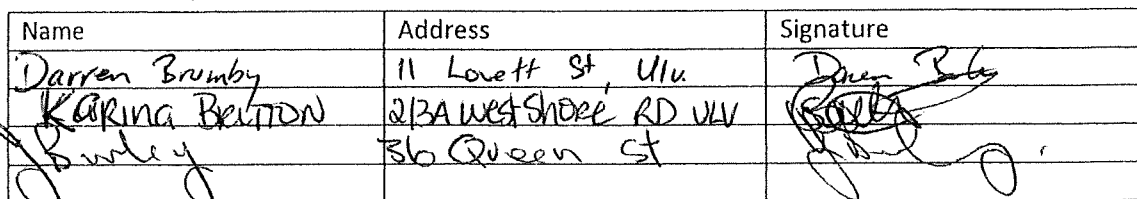 Name Address Signature
Darren Brumby 11 Lovett St, Ulv. Darren Brumby
KARINA BRITTON 2/3A WEST SHORE RD ULV
J Burley 36 Queen St